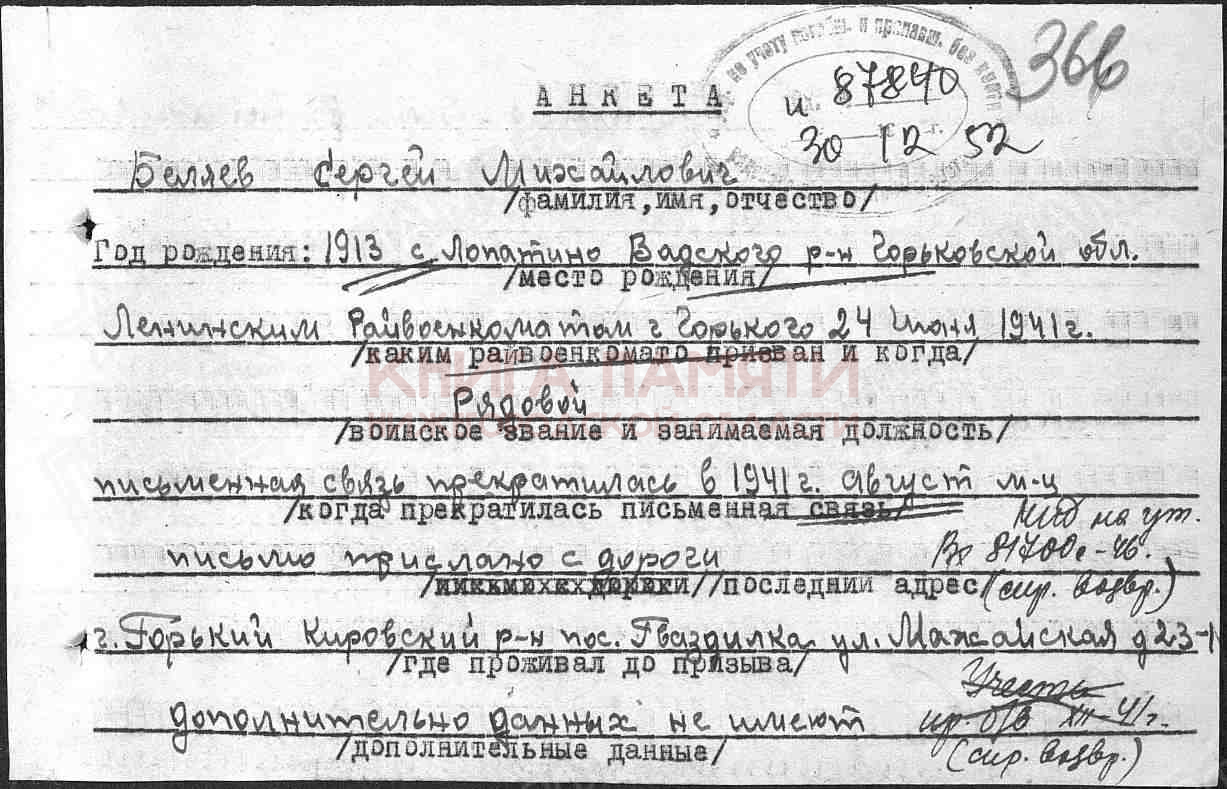 366
по учету погибш. и пропавш. без
АНКЕТА
и 87840
30 12 52
Беляев Сергей Михайлович
/фамилия,имя,отчество/
Год рождения: 1913 с. Лопатино Вадского р-н Горьковской обл.
/место рождения/
Ленинским Райвоенкоматом г Горького 24 Июня 1941 г.
/каким райвоенкомато призван и когда/
КНИГА ПАМЯТИ
Рядовой
/воинское звание и занимаемая должность/
письменная связь прекратилась в 1941 г. август м-ц
/когда прекратилась письменная связь/
на ут.
письмо прислано с дороги
Вх 81700с-46.
/последний адрес
(спр. возвр.)
г. Горький Кировский р-н пос. Гваздилка ул. Мажайская д 23-1
/где проживал до призыва/
Учесть
дополнительно данных не имеют пр. б/в XII-41г.
/дополнительные данные/
(спр. возвр.)